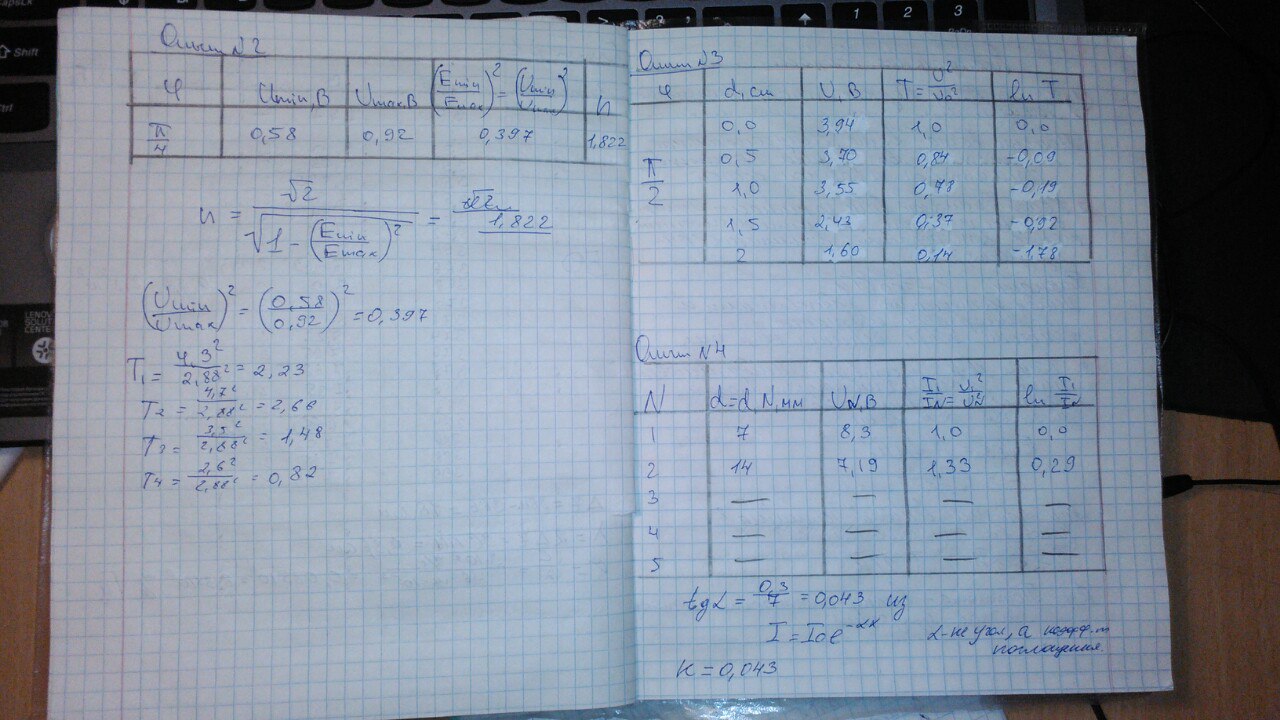 Опыт №2
φ Umin, В Umax, В (Emin/Emax)² = (Umin/Umax)² n
π/4 0,58 0,92 0,397 1,822
n = √2 / √(1 - (Emin/Emax)²) = 1,822
(Umin/Umax)² = (0,58/0,92)² = 0,397
T₁ = 4,3²/2,88² = 2,23
T₂ = 4,7²/2,88² = 2,66
T₃ = 3,5²/2,88² = 1,48
T₄ = 2,6²/2,88² = 0,82
Опыт №3
φ d, см U, В T = U²/U₀² ln T
0,0 3,94 1,0 0,0
π/2
0,5 3,70 0,84 -0,09
1,0 3,55 0,78 -0,19
1,5 2,43 0,37 -0,92
2 1,60 0,14 -1,78
Опыт №4
N d=d N, мм UN, В I₁/IN = U₁²/UN² ln I₁/IN
1 7 8,3 1,0 0,0
2 14 7,19 1,33 0,29
3 — — — —
4 — — — —
5 — — — —
tgα = 0,3/7 = 0,043 из
I = I₀e^-αx α-не угол, а коэфф-т
поглощения
K = 0,043
Shift
1 2 3
LENOVO
SOLUTION
CENTER